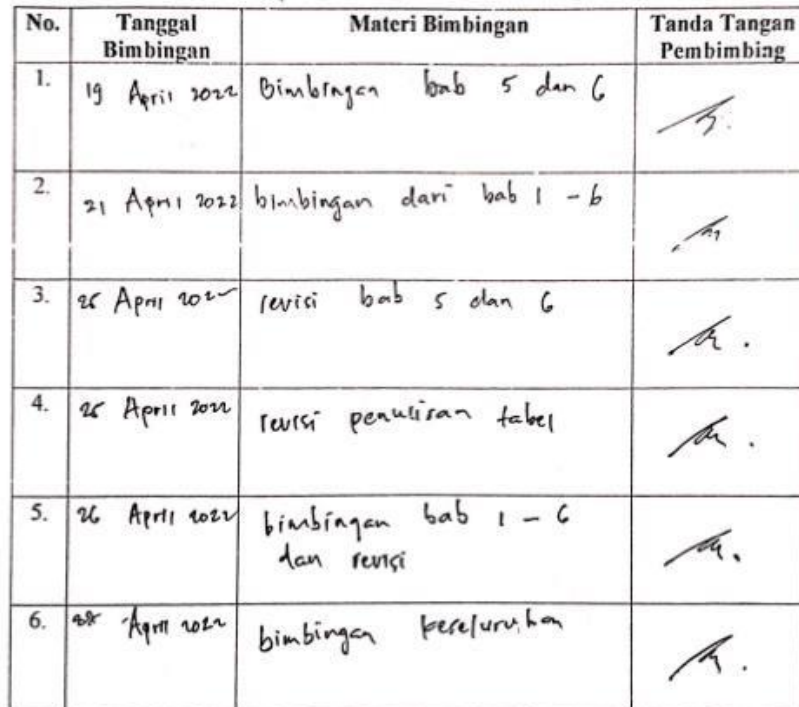 No. Tanggal Bimbingan Materi Bimbingan Tanda Tangan Pembimbing
1. 19 April 2022 Bimbingan bab 5 dan 6
2. 21 April 2022 bimbingan dari bab 1 - 6
3. 25 April 2022 revisi bab 5 dan 6
4. 25 April 2022 revisi penulisan tabel
5. 26 April 2022 bimbingan bab 1 - 6
dan revisi
6. April 2022 bimbingan keseluruhan